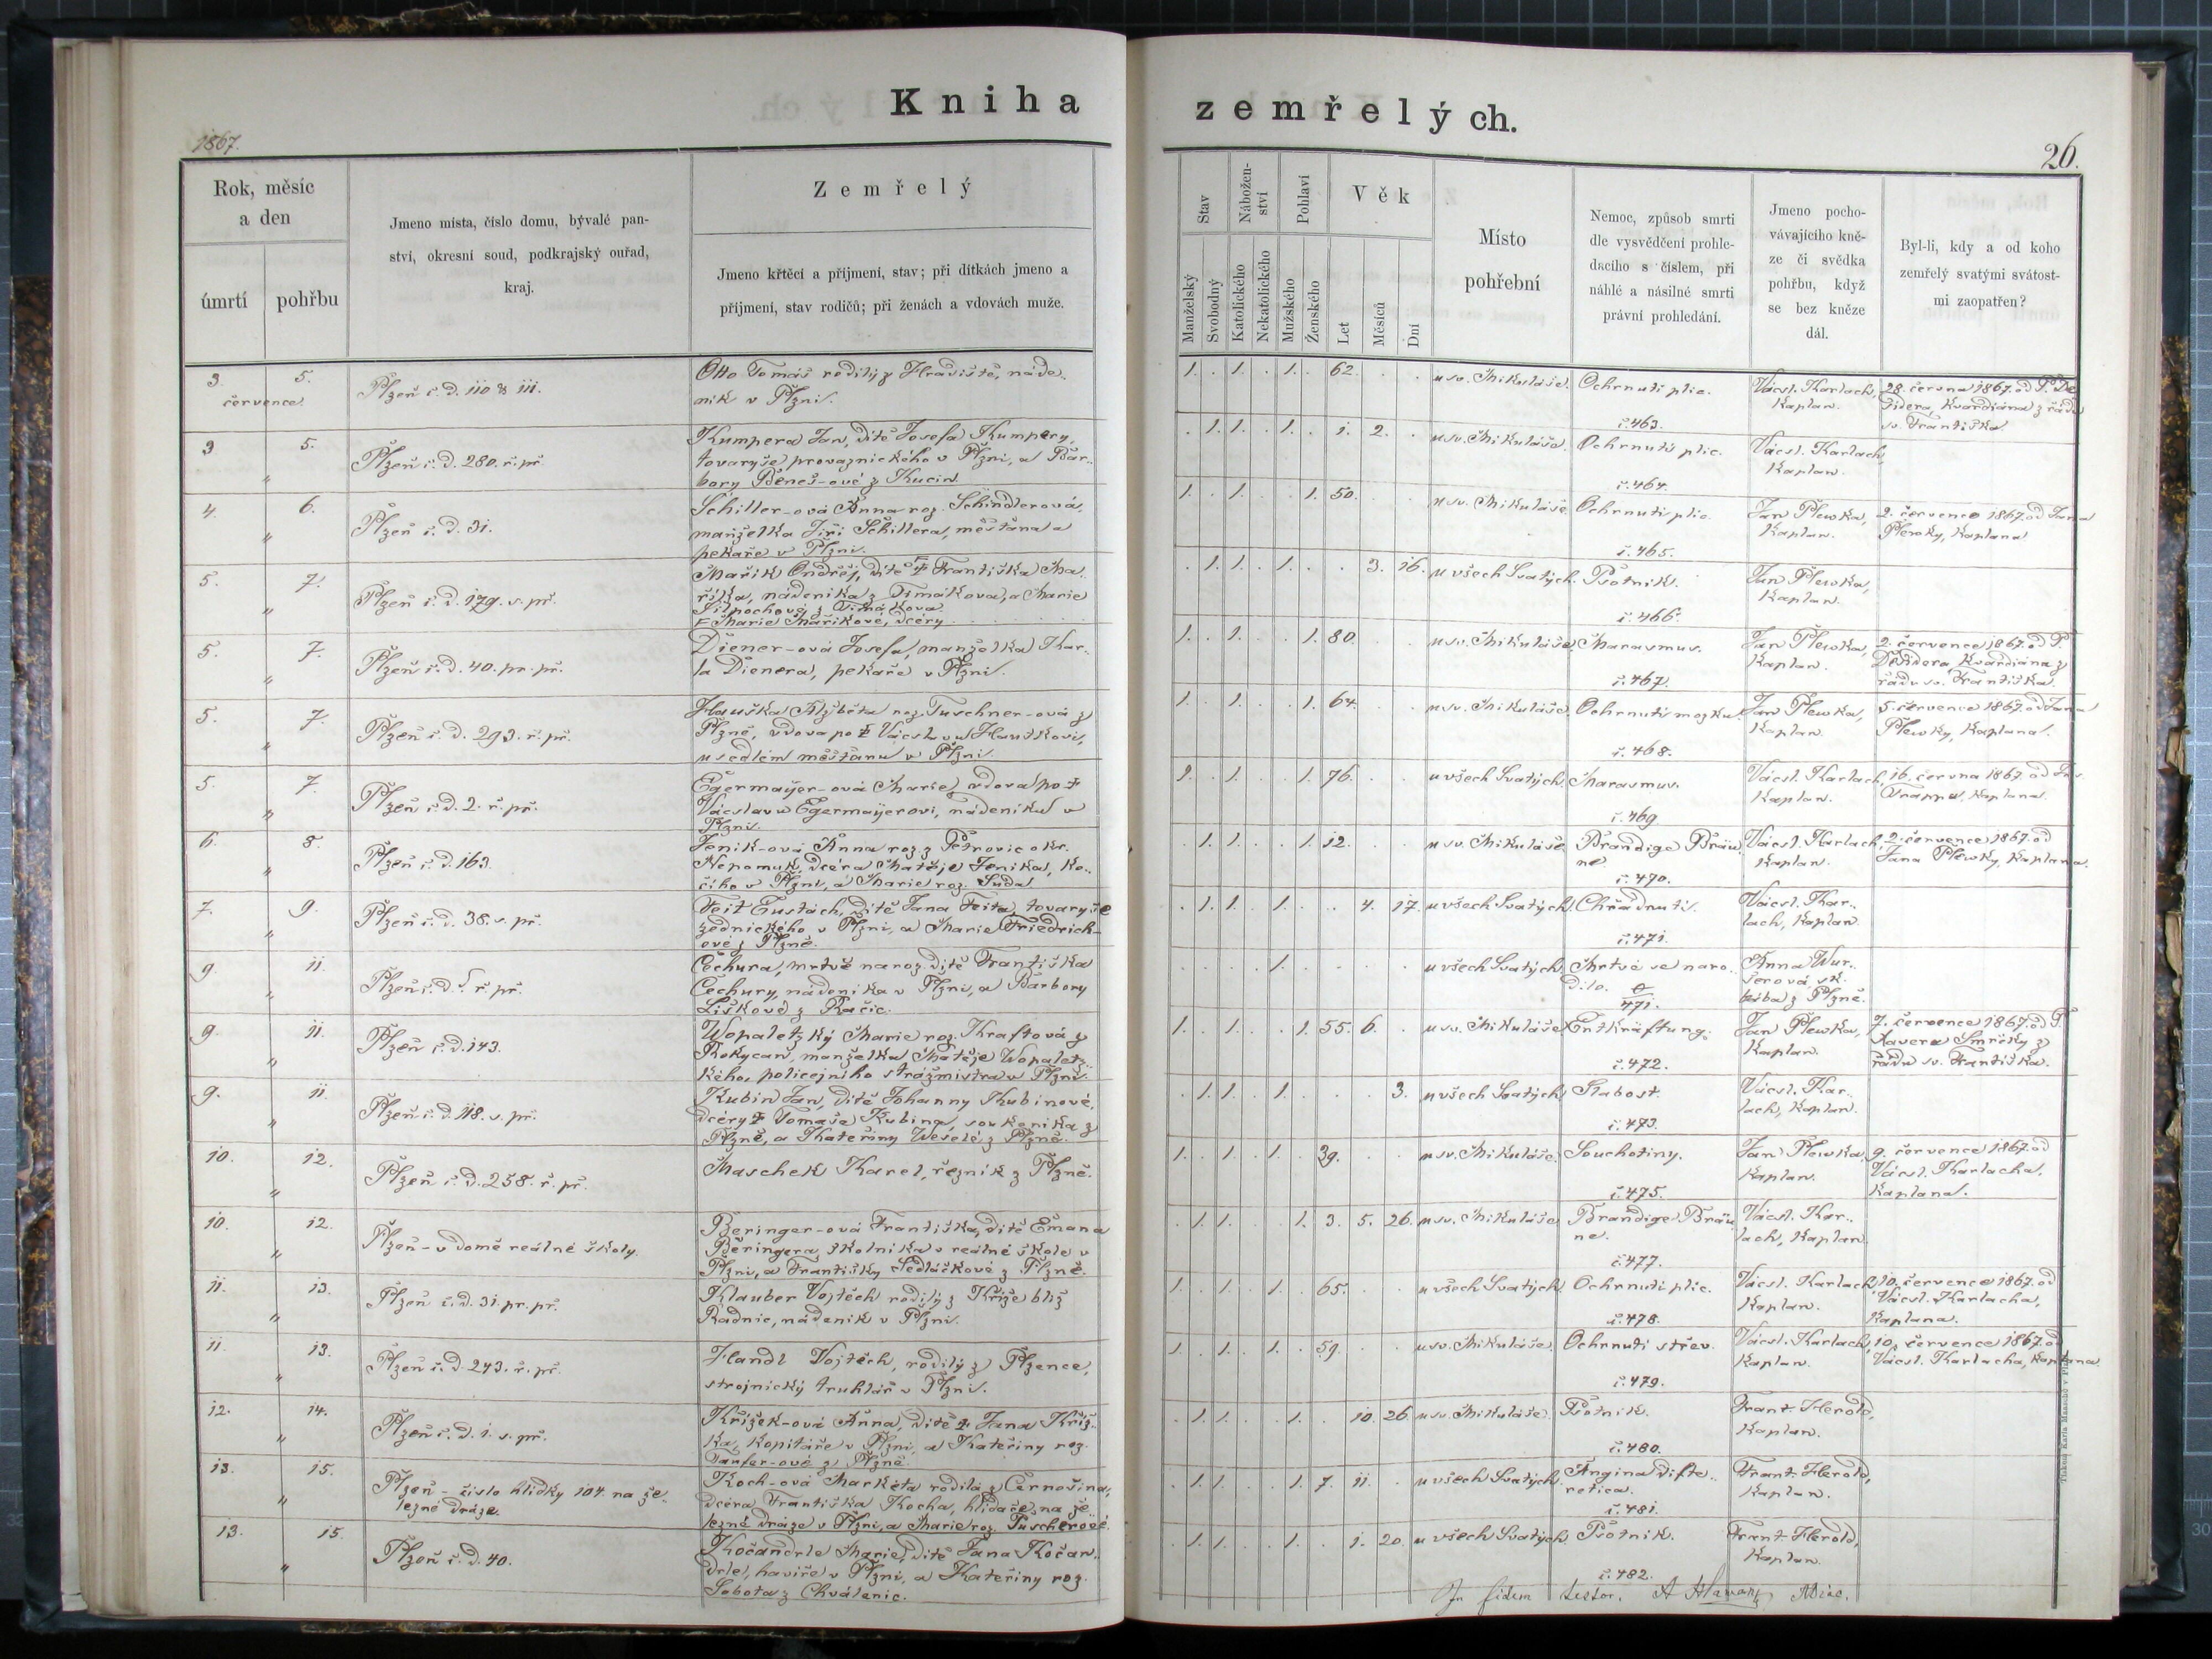 Kniha
zemřelých.
1867.
26.
Rok, měsíc
a den
úmrtí
pohřbu
Jmeno místa, číslo domu, bývalé pan-
ství, okresní soud, podkrajský ouřad,
kraj.
Zemřelý
Jmeno křtěcí a příjmení, stav; při dítkách jmeno a
příjmení, stav rodičů; při ženách a vdovách muže.
Stav
Nábožen-
ství
Pohlaví
Věk
Manželský
Svobodný
Katolického
Nekatolického
Mužského
Ženského
Let
Měsíců
Dní
Místo
pohřební
Nemoc, způsob smrti
dle vysvědčení prohle-
dacího s číslem, při
náhlé a násilné smrti
právní prohledání.
Jmeno pocho-
vávajícího kně-
ze či svědka
pohřbu, když
se bez kněze
dál.
Byl-li, kdy a od koho
zemřelý svatými svátost-
mi zaopatřen?
3. 5.
července
Plzeň č. d. 110 & 111.
Otto Tomáš rodilý z Hradiště, náde-
ník v Plzni.
1. 1. 1. 62.
u sv. Mikuláše.
Ochrnutí plic.
č. 463.
Vácsl. Karlach,
Kaplan.
28. června 1867. od P. De
sidera, Kvardiána z řádu
sv. Františka.
3 5.
"
Plzeň č. d. 280. ř. př.
Kumpera Jan, dítě Josefa Kumpery,
tovaryše provaznického v Plzni, a Bar-
bory Beneš-ové z Kucin.
1. 1. 1. 1. 2.
u sv. Mikuláše.
Ochrnutí plic.
č. 464.
Vácsl. Karlach,
Kaplan.
4. 6.
"
Plzeň č. d. 31.
Schiller-ová Anna roz. Schindlerová,
manželka Jiří Schillera, měšťana a
pekaře v Plzni.
1. 1. 1. 50.
u sv. Mikuláše
Ochrnutí plic
č. 465.
Jan Plewka,
Kaplan.
2. července 1867. od Jana
Plewky, Kaplana
5. 7.
"
Plzeň č. d. 179. s. př.
Mařík Ondřej, dítě Františka Ma-
říka, nádeníka z Timákova, a Marie
z Timákova
Marie Maříkové, dcery
1. 1. 1. 3. 16.
u všech Svatých.
Psotník.
č. 466.
Jan Plewka,
Kaplan.
5. 7.
"
Plzeň č. d. 40. pr. př.
Diener-ová Josefa, manželka Kar-
la Dienera, pekaře v Plzni.
1. 1. 1. 80.
u sv. Mikuláše
Marasmus.
č. 467.
Jan Plewka,
Kaplan.
2. července 1867. od P.
Desidera Kvardiána z
řádu sv. Františka.
5. 7.
"
Plzeň č. d. 293. ř. př.
Hauška Alžběta roz. Tuschner-ová z
Plzně, vdova po Vácslavu Hauškovi,
usedlém měšťanu v Plzni.
1. 1. 1. 64.
u sv. Mikuláše.
Ochrnutí mozku.
č. 468.
Jan Plewka,
Kaplan.
5. července 1867. od Jana
Plewky, Kaplana.
5. 7.
"
Plzeň č. d. 2. ř. př.
Egermaÿer-ová Marie, vdova po
Vácslavu Egermaÿerovi, nádeníku v
Plzni.
1. 1. 1. 76.
u všech Svatých.
Marasmus.
č. 469
Vácsl. Karlach,
Kaplan.
16. června 1867. od
Trappu, Kaplana.
6. 8.
"
Plzeň č. d. 163.
Jeník-ová Anna roz. z Petrovic okr.
Nepomuk, dcera Matěje Jeníka, ko-
čího v Plzni, a Marie roz. Suda
1. 1. 1. 12.
u sv. Mikuláše
Brandige Bräu
ne.
č. 470.
Vácsl. Karlach,
Kaplan.
2. července 1867. od
Jana Plewky, Kaplana.
7. 9.
"
Plzeň č. d. 38. s. př.
Feit Eustach, dítě Jana Feita, tovaryše
zednického v Plzni, a Marie Friedrich-
ové z Plzně.
1. 1. 1. 4. 17.
u všech Svatých.
Chřadnutí.
č. 471.
Vácsl. Kar-
lach, Kaplan.
9. 11.
"
Plzeň č. d. ř. př.
Čechura, mrtvě naroz. dítě Františka
Čechury, nádeníka v Plzni, a Barbory
Liškové z Račic.
1.
u všech Svatých.
Mrtvé se naro-
dilo.
471.
Anna Wur-
serová, sk.
bába z Plzně.
9. 11.
"
Plzeň č. d. 143.
Wopaletzký Marie roz. Kraftová z
Rokycan, manželka Matěje Wopaletz-
kého, policejního strážmistra v Plzni.
1. 1. 1. 55. 6.
u sv. Mikuláše
Entkräftung.
č. 472.
Jan Plewka,
Kaplan.
7. července 1867. od P.
Xavera Smrčky z
řádu sv. Františka.
9. 11
"
Plzeň č. d. 118. s. př.
Kubín Jan, dítě Johanny Kubínové,
dcery Tomáše Kubína, soukeníka z
Plzně, a Kateřiny Weselé z Plzně.
1. 1. 1. 3.
u všech Svatých
Slabost.
č. 473.
Vácsl. Kar-
lach, Kaplan.
10. 12.
"
Plzeň č. d. 258. ř. př.
Maschek Karel, řezník z Plzně.
1. 1. 1. 39.
u sv. Mikuláše.
Souchotiny.
č. 475.
Jan Plewka,
Kaplan.
9. července 1867. od
Vácsl. Karlacha,
Kaplana.
10. 12.
"
Plzeň - v domě reálné školy.
Beringer-ová Františka, dítě Emana
Beringera, školníka v reálné škole v
Plzni, a Františky Sedláčkové z Plzně.
1. 1. 1. 3. 5. 26.
u sv. Mikuláše
Brandige Bräu
ne.
č. 477.
Vácsl. Kar-
lach, Kaplan.
11. 13.
"
Plzeň č. d. 31. pr. př.
Klauber Vojtěch rodilý z Kříše blíž
Radnic, nádeník v Plzni.
1. 1. 1. 65.
u všech Svatých.
Ochrnutí plic.
č. 478.
Vácsl. Karlach,
Kaplan.
10. července 1867. od
Vácsl. Karlacha,
Kaplana.
11. 13.
"
Plzeň č. d. 243. ř. př.
Handl Vojtěch, rodilý z Plzence,
strojnický truhlář v Plzni.
1. 1. 1. 59.
u sv. Mikuláše.
Ochrnutí střev.
č. 479.
Vácsl. Karlach,
Kaplan.
10. července 1867. od
Vácsl. Karlacha, Kaplana
12. 14.
"
Plzeň č. d. 1. s. př.
Křížek-ová Anna, dítě Jana Kříž-
ka, Kopitáře v Plzni, a Kateřiny roz.
z Plzně
1. 1. 1. 10. 26.
u sv. Mikuláše.
Psotník.
č. 480.
Frant. Herold,
Kaplan.
13. 15.
"
Plzeň - číslo hlídky 104. na že-
lezné dráze.
Koch-ová Markéta rodilá z Černošína,
dcera Františka Kocha, hlídače na že-
lezné dráze v Plzni, a Marie roz. Tuscherové.
1. 1. 1. 7. 11.
u všech Svatých.
Angina difte-
retica.
č. 481.
Frant. Herold,
Kaplan.
13. 15.
"
Plzeň č. d. 40.
Kočandrle Marie, dítě Jana Kočan-
drle, havíře v Plzni, a Kateřiny roz.
Sobota z Chválenic.
1. 1. 1. 1. 20.
u všech Svatých.
Psotník.
č. 482.
Frant. Herold,
Kaplan.
In fidem testor.